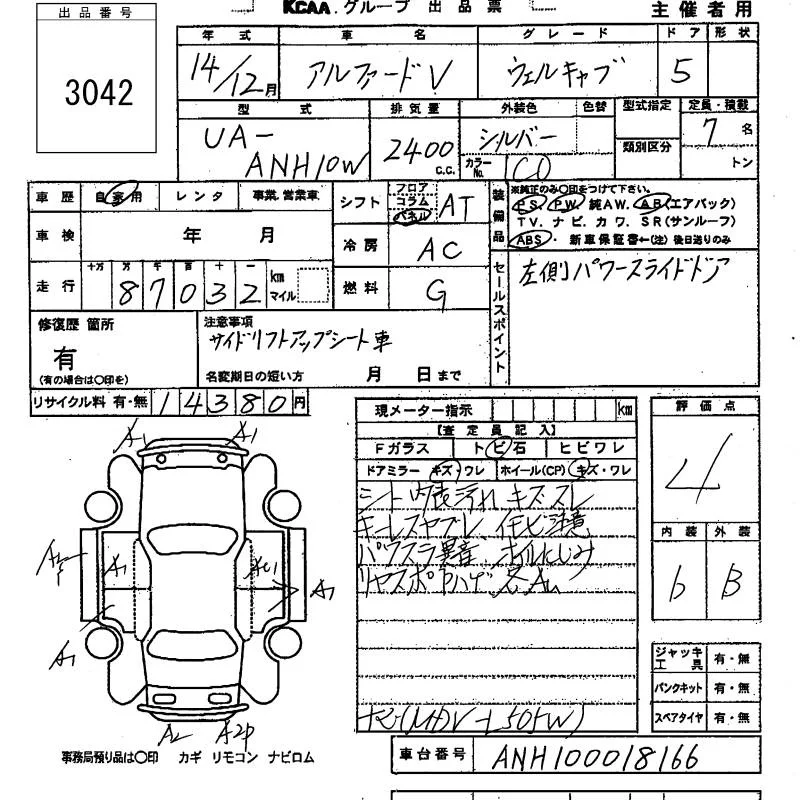 出品番号
3042
KCAA グループ 出品票
主催者用
年式 車名 グレード ドア 形状
14/12月 アルファードV ウェルキャブ 5
型式 排気量 外装色 色替 型式指定 定員・積載
UA-
ANH10W
2400 C.C.
シルバー
カラーNo. 1C0
類別区分
7名
トン
車歴 自家用 レンタ 事業、営業車
車検 年 月
走行 十万 万 千 百 十 一
87032 km マイル
シフト フロア コラム パネル AT
冷房 AC
燃料 G
装備品
※純正のみ○印をつけて下さい。
PS. PW. 純AW. AB(エアバック)
TV. ナビ. カワ. SR(サンルーフ)
ABS ・ 新車保証書←(注) 後日送りのみ
セールスポイント
左側パワースライドドア
修復歴 箇所
有
(有の場合は○印を)
注意事項
サイドリフトアップシート車
名変期日の短い方 月 日まで
リサイクル料 有・無 14380円
現メーター指示 km
【査定員記入】
Fガラス トビ石 ヒビワレ
ドアミラー キズ・ワレ ホイール(CP) キズ・ワレ
シート内装汚れ キズ スレ
キーレスヤブレ
パワスラ異音 オイルにじみ
リヤスポイラハゲ
評価点
4
内装 外装
6 B
ジャッキ工具 有・無
パンクキット 有・無
スペアタイヤ 有・無
A1 A1
A1
A1
A1
A2 A2P
事務局預り品は○印 カギ リモコン ナビロム
車台番号 ANH100018166